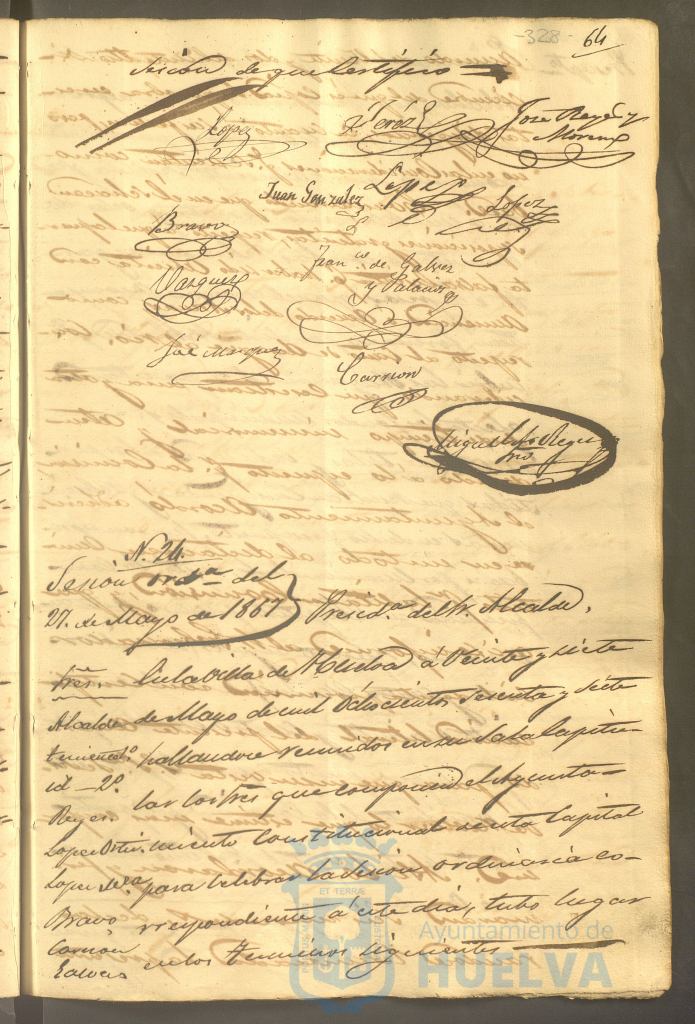 -328- 64
Sesion de que Certifico
Lopez Perez José Reyes y
Moreno
Juan Gonzalez Lopez Lopez
Bravo
Franco. de Galvez
y Palacios
Vazquez
José Marquez
Carrion
N. 24.
Sesion ordª del
27. de Mayo de 1867 } Presidª del Sr. Alcalde,
Sres. En la Villa de Huelva á Veinte y siete
Alcalde de Mayo de mil Ochocientos sesenta y siete
hallandose reunidos en su Sala Capitu-
id - 2º lar los Sres que componen el Ayunta-
Reyes. miento Constitucional de esta Capital
Lopez para celebrar la sesion ordinaria co-
Bravo rrespondiente á este dia, tubo lugar
Carrion en los terminos siguientes
Galvez
ET TERRÆ
Ayuntamiento de
HUELVA